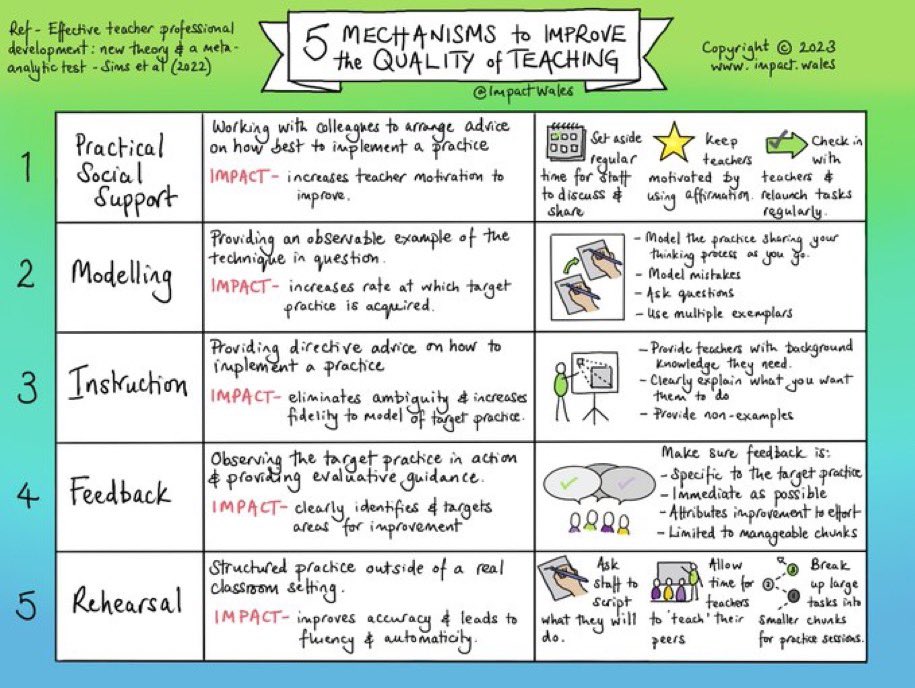 Ref - Effective teacher professional
development: new theory & a meta-
analytic test - Sims et al (2022)
5 MECHANISMS to IMPROVE
the QUALITY of TEACHING
@ImpactWales
Copyright © 2023
www.impact.wales
1
Practical
Social
Support
Working with colleagues to arrange advice
on how best to implement a practice
IMPACT- increases teacher motivation to
improve.
Set aside
regular
time for staff
to discuss &
share
Keep
teachers
motivated by
using affirmation.
Check in
with
teachers &
relaunch tasks
regularly.
2
Modelling
Providing an observable example of the
technique in question.
IMPACT- increases rate at which target
practice is acquired.
- Model the practice sharing your
thinking process as you go.
- Model mistakes
- Ask questions
- Use multiple exemplars
3
Instruction
Providing directive advice on how to
implement a practice
IMPACT- eliminates ambiguity & increases
fidelity to model of target practice.
- Provide teachers with background
knowledge they need.
- Clearly explain what you want
them to do
- Provide non-examples
4
Feedback
Observing the target practice in action
& providing evaluative guidance.
IMPACT- clearly identifies & targets
areas for improvement
Make sure feedback is:
- Specific to the target practice
- Immediate as possible
- Attributes improvement to effort
- Limited to manageable chunks
5
Rehearsal
Structured practice outside of a real
classroom setting.
IMPACT- improves accuracy & leads to
fluency & automaticity.
Ask
staff to
script
what they will
do.
Allow
time for
teachers
to 'teach' their
peers
Break
up large
tasks into
smaller chunks
for practice sessions.